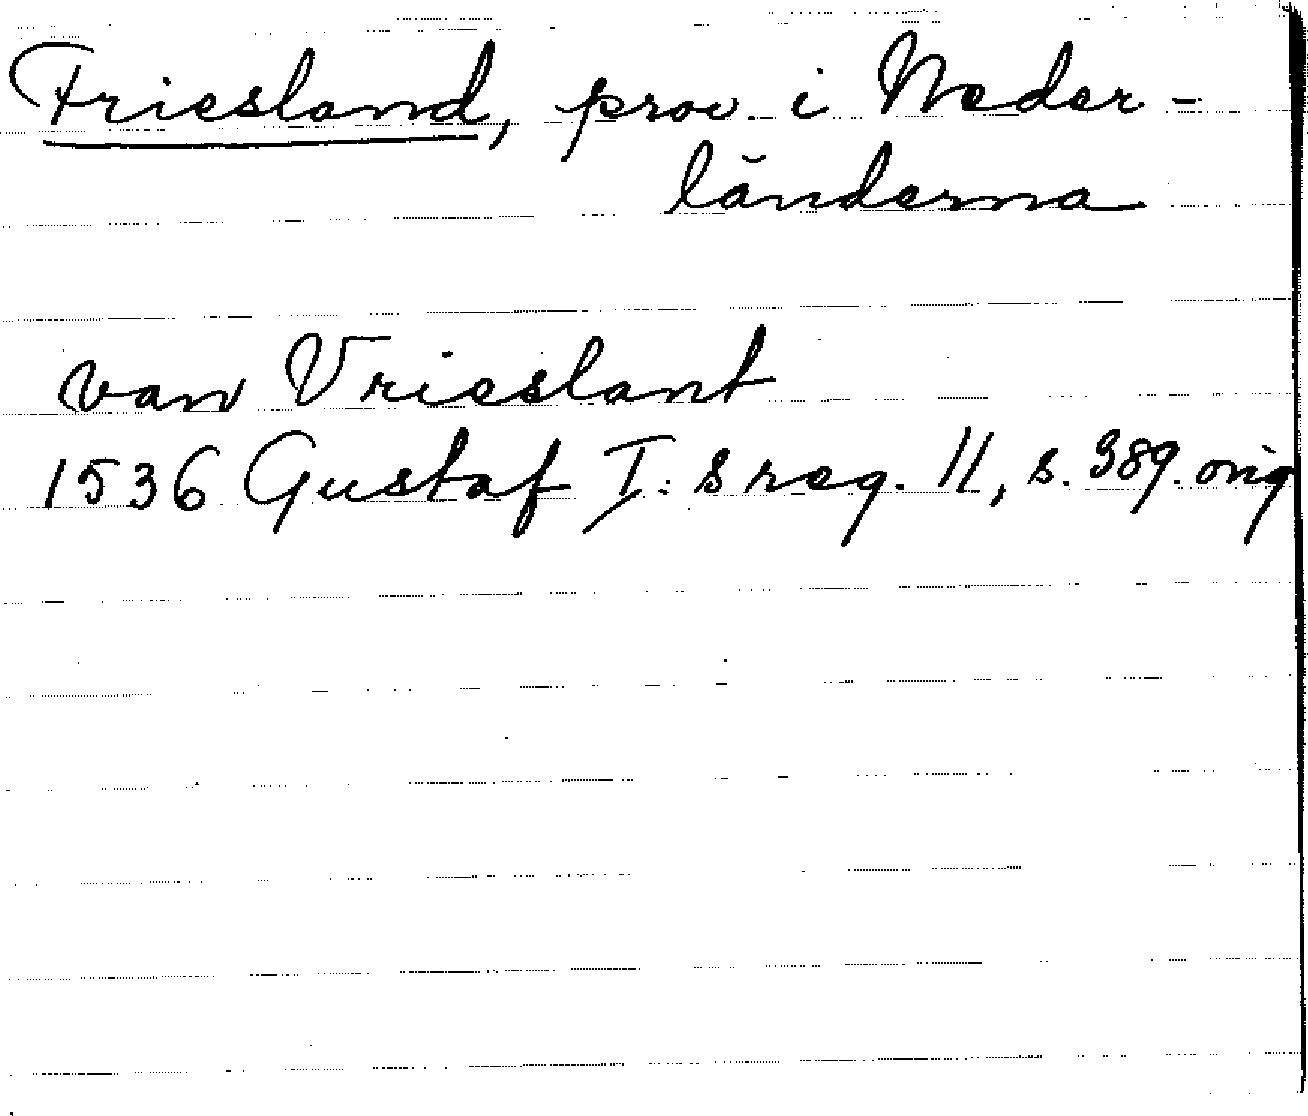 Friesland, prov. i Neder-
länderna
van Vrieslant
1536 Gustaf I:s reg. 11, s. 389. orig